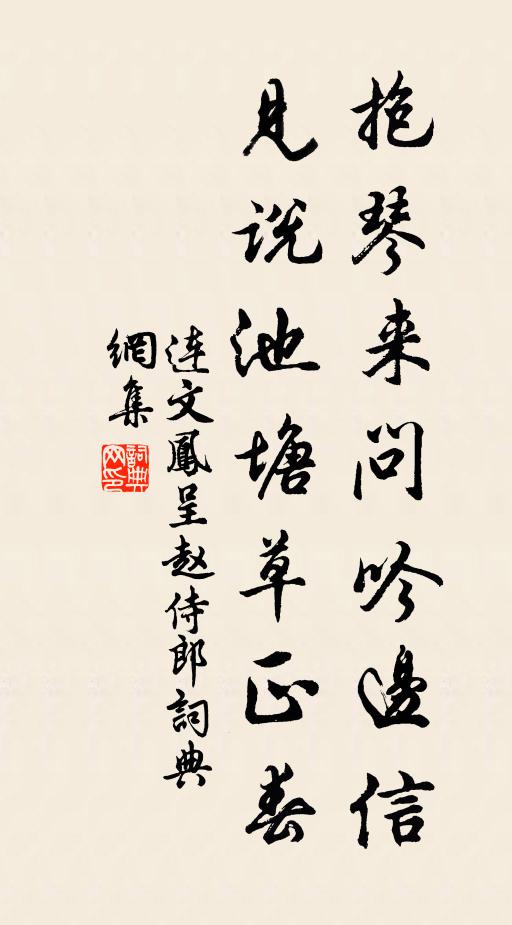 抱琴来问吟邊信
見説池塘草正春
连文鳳呈赵侍郎詞典
網集
詞典
网印